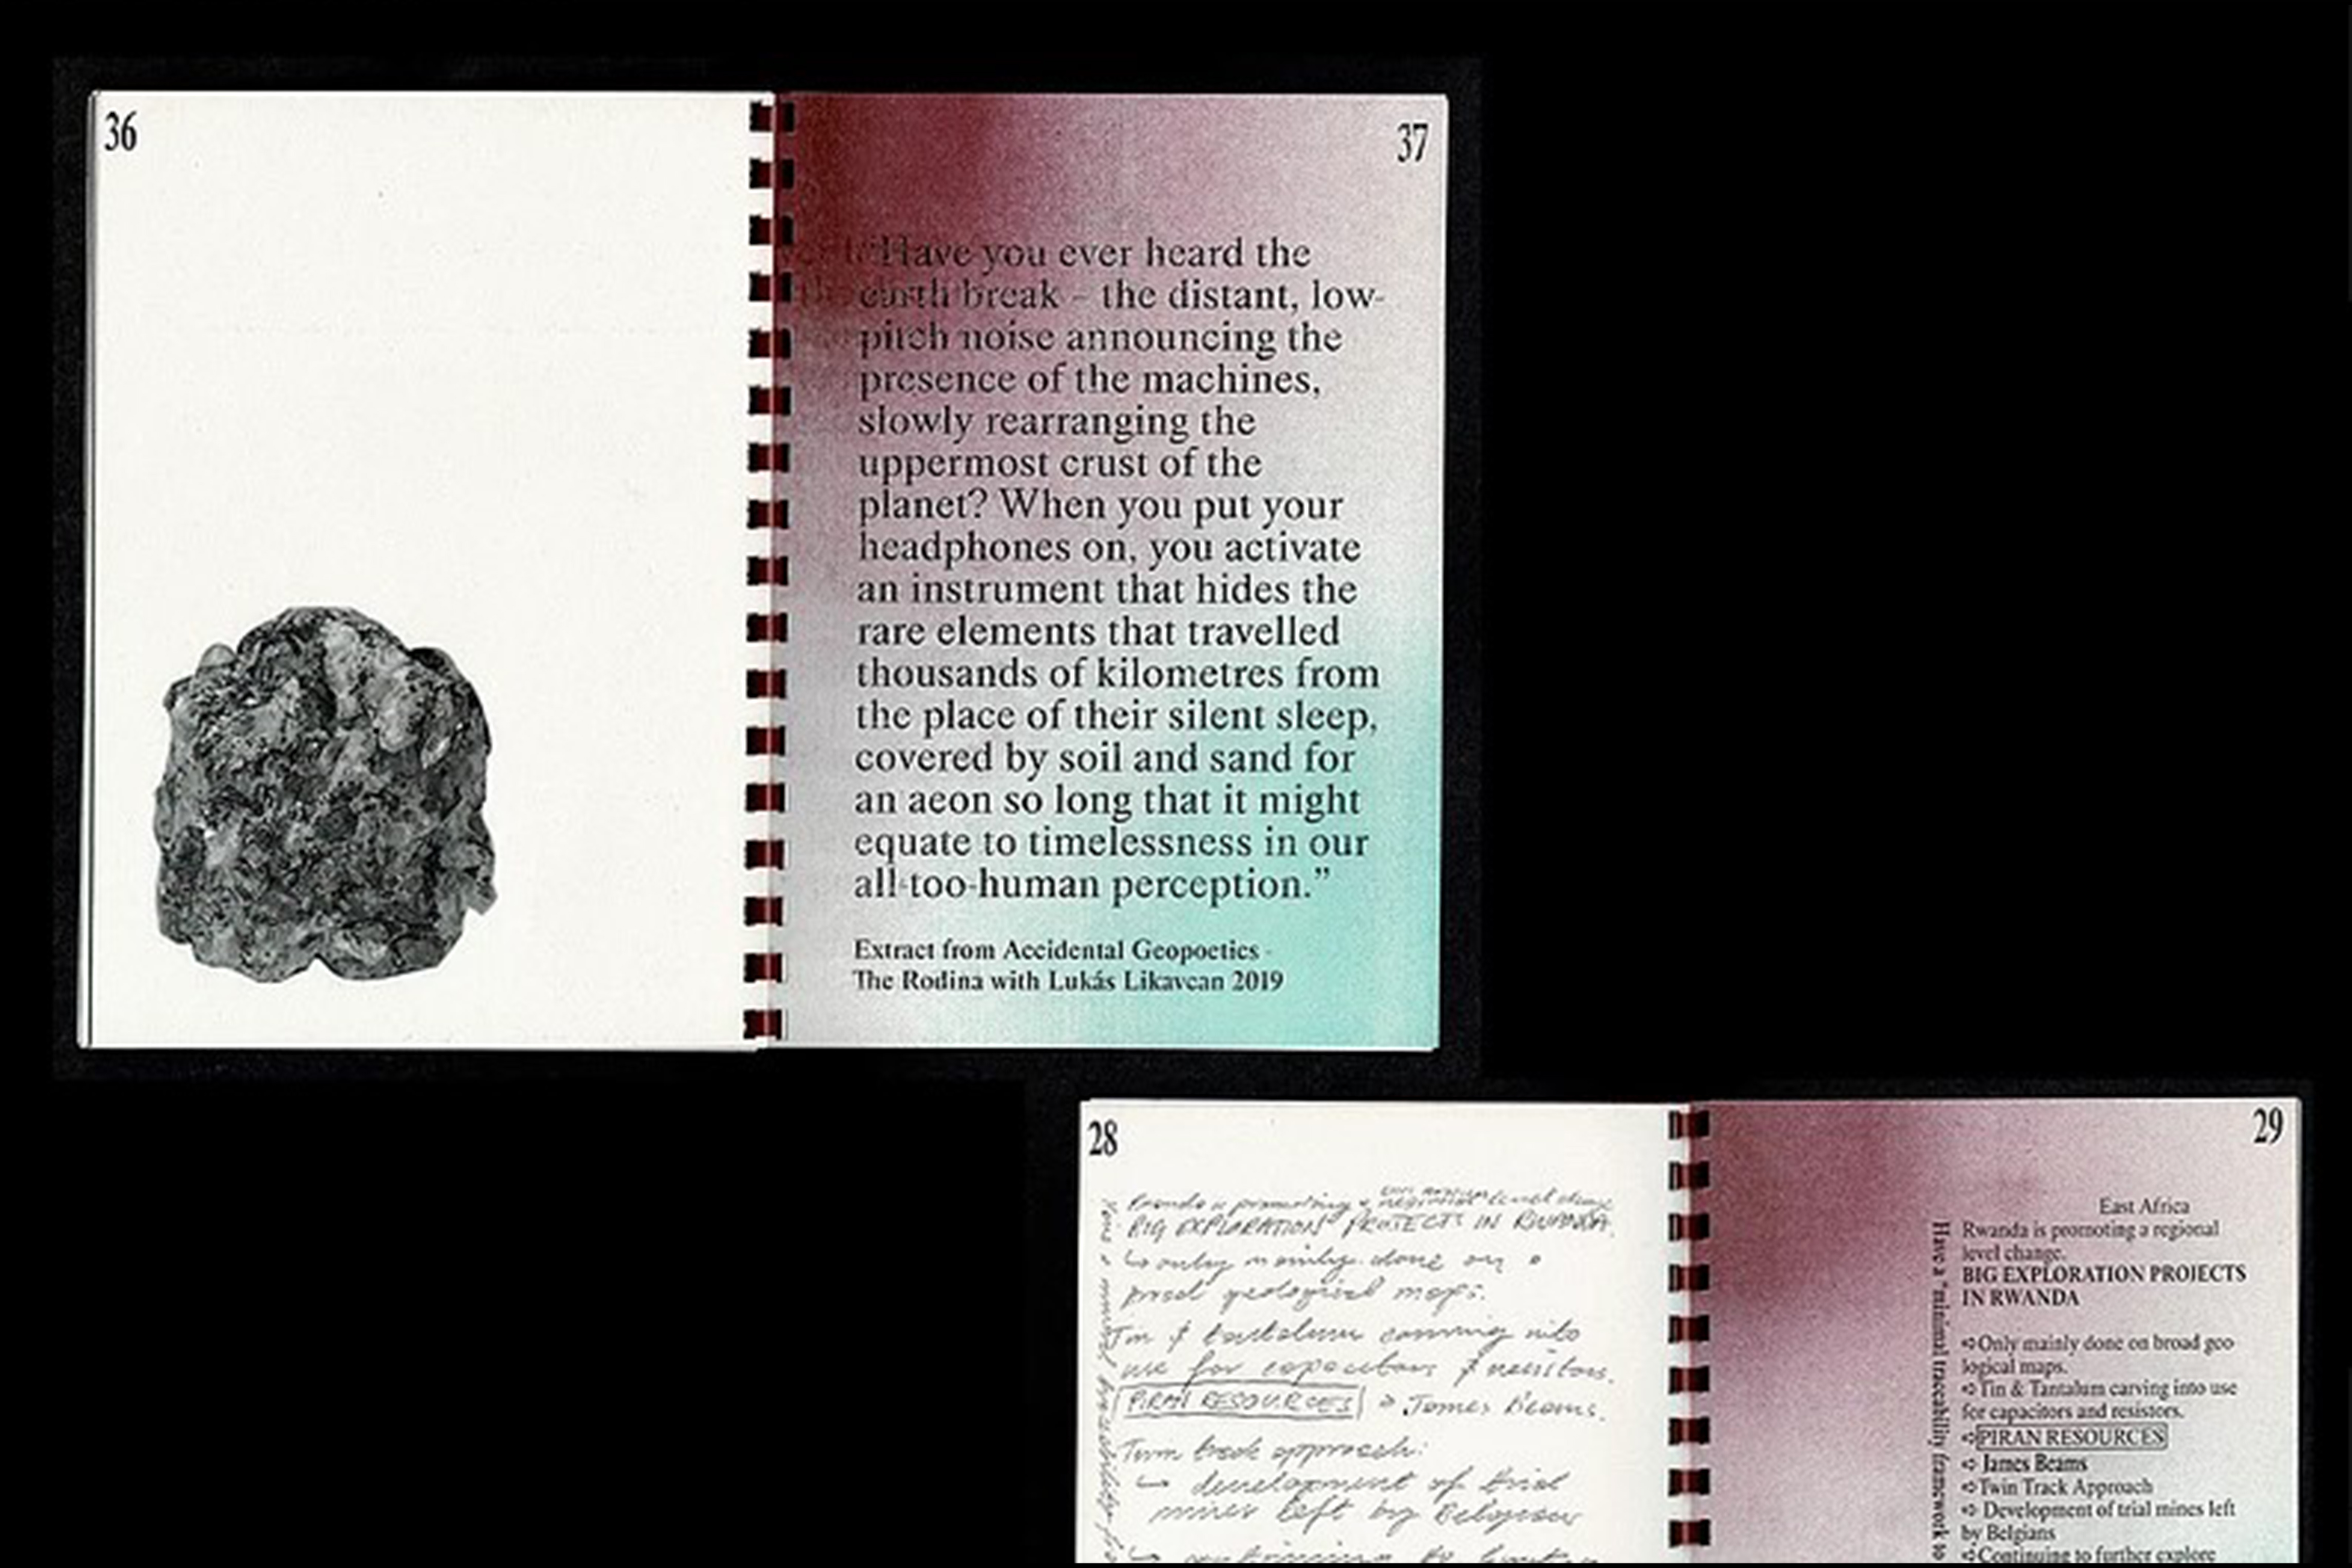 36
37
“Have you ever heard the
earth break – the distant, low-
pitch noise announcing the
presence of the machines,
slowly rearranging the
uppermost crust of the
planet? When you put your
headphones on, you activate
an instrument that hides the
rare elements that travelled
thousands of kilometres from
the place of their silent sleep,
covered by soil and sand for
an aeon so long that it might
equate to timelessness in our
all-too-human perception.”
Extract from Accidental Geopoetics -
The Rodina with Lukás Likavcan 2019
28
Rwanda is promoting a level change
BIG EXPLORATION PROJECTS IN RWANDA.
↳ only mainly done on
broad geological maps.
Tin & tantalum carving into
use for capacitors & resistors.
PIRAN RESOURCES » James Beams.
Twin track approach:
↳ development of trial
mines left by Belgian
29
East Africa
Rwanda is promoting a regional
level change.
BIG EXPLORATION PROJECTS
IN RWANDA
➪Only mainly done on broad geo
logical maps.
➪Tin & Tantalum carving into use
for capacitors and resistors.
➪PIRAN RESOURCES
➪ James Beams
➪Twin Track Approach
➪ Development of trial mines left
by Belgians
➪Continuing to further explore
Have a "minimal traceability framework to